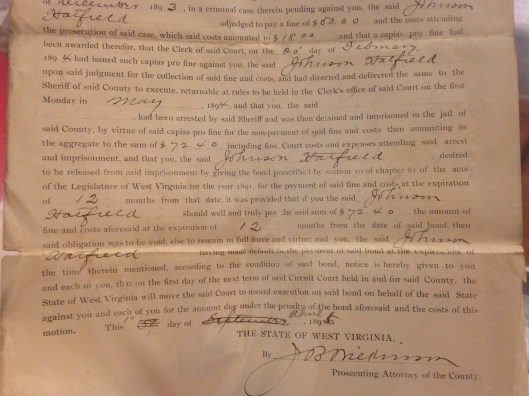 of December 1893, in a criminal case therein pending against you, the said Johnson
Hatfield adjudged to pay a fine of $50.00 and the costs attending
the prosecution of said case, which said costs amounted to $18.00 and that a capias pro fine had
been awarded therefor, that the Clerk of said Court, on the 20" day of Febuary
1894 had issued such capias pro fine against you, the said Johnson Hatfield
upon said judgment for the collection of said fine and costs, and had directed and delivered the same to the
Sheriff of said County to execute, returnable at rules to be held in the Clerk's office of said Court on the first
Monday in May, 1894, and that you, the said
, had been arrested by said Sheriff and was then detained and imprisoned in the jail of
said County, by virtue of said capias pro fine for the non-payment of said fine and costs then amounting in
the aggregate to the sum of $72.40 including fine, Court costs and expenses attending said arrest
and imprisonment, and that you, the said Johnson Hatfield, desired
to be released from said imprisonment by giving the bond prescribed by section 10 of chapter 61 of the acts
of the Legislature of West Virginia for the year 1891, for the payment of said fine and costs at the expiration
of 12 months from that date, it was provided that if you the said Johnson
Hatfield should well and truly pay the said sum of $72.40, the amount of
fine and costs aforesaid at the expiration of 12 months from the date of said bond, then
said obligation was to be void, else to remain in full force and virtue; and you, the said Johnson
Hatfield having made default in the payment of said bond at the expiration of
the time therein mentioned, according to the condition of said bond, notice is hereby given to you
and each of you, that on the first day of the next term of said Circuit Court held in and for said County, the
State of West Virginia will move the said Court to award execution on said bond on behalf of the said State
against you and each of you for the amount due under the penalty of the bond aforesaid and the costs of this
motion. This 1" day of September 189
THE STATE OF WEST VIRGINIA.
By J B Wilkinson
Prosecuting Attorney of the County.